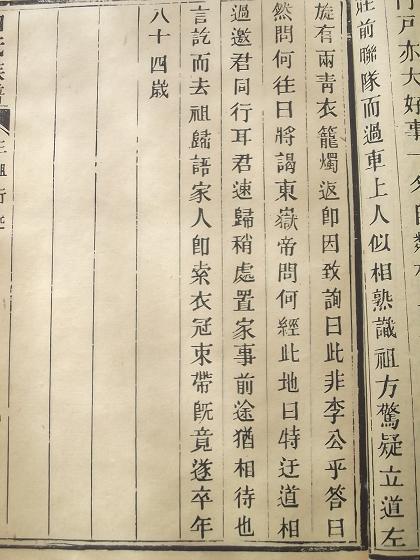 亦大好事一夕
莊前聯隊而過車上人似相熟識祖方驚疑立道左
旋有兩青衣籠燭返即因致詢曰此非李公乎答曰
然問何往曰將謁東嶽帝問何經此地曰特迂道相
過邀君同行耳君速歸稍處置家事前途猶相待也
言訖而去祖歸語家人即索衣冠束帶既竟遂卒年
八十四歲
氏族譜